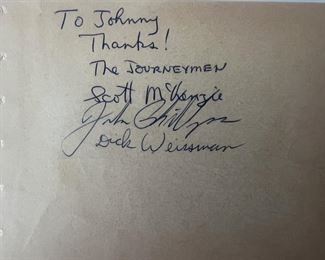 To Johnny
Thanks!
The JOURNEYMEN
Scott McKenzie
John Phillips
Dick Weissman